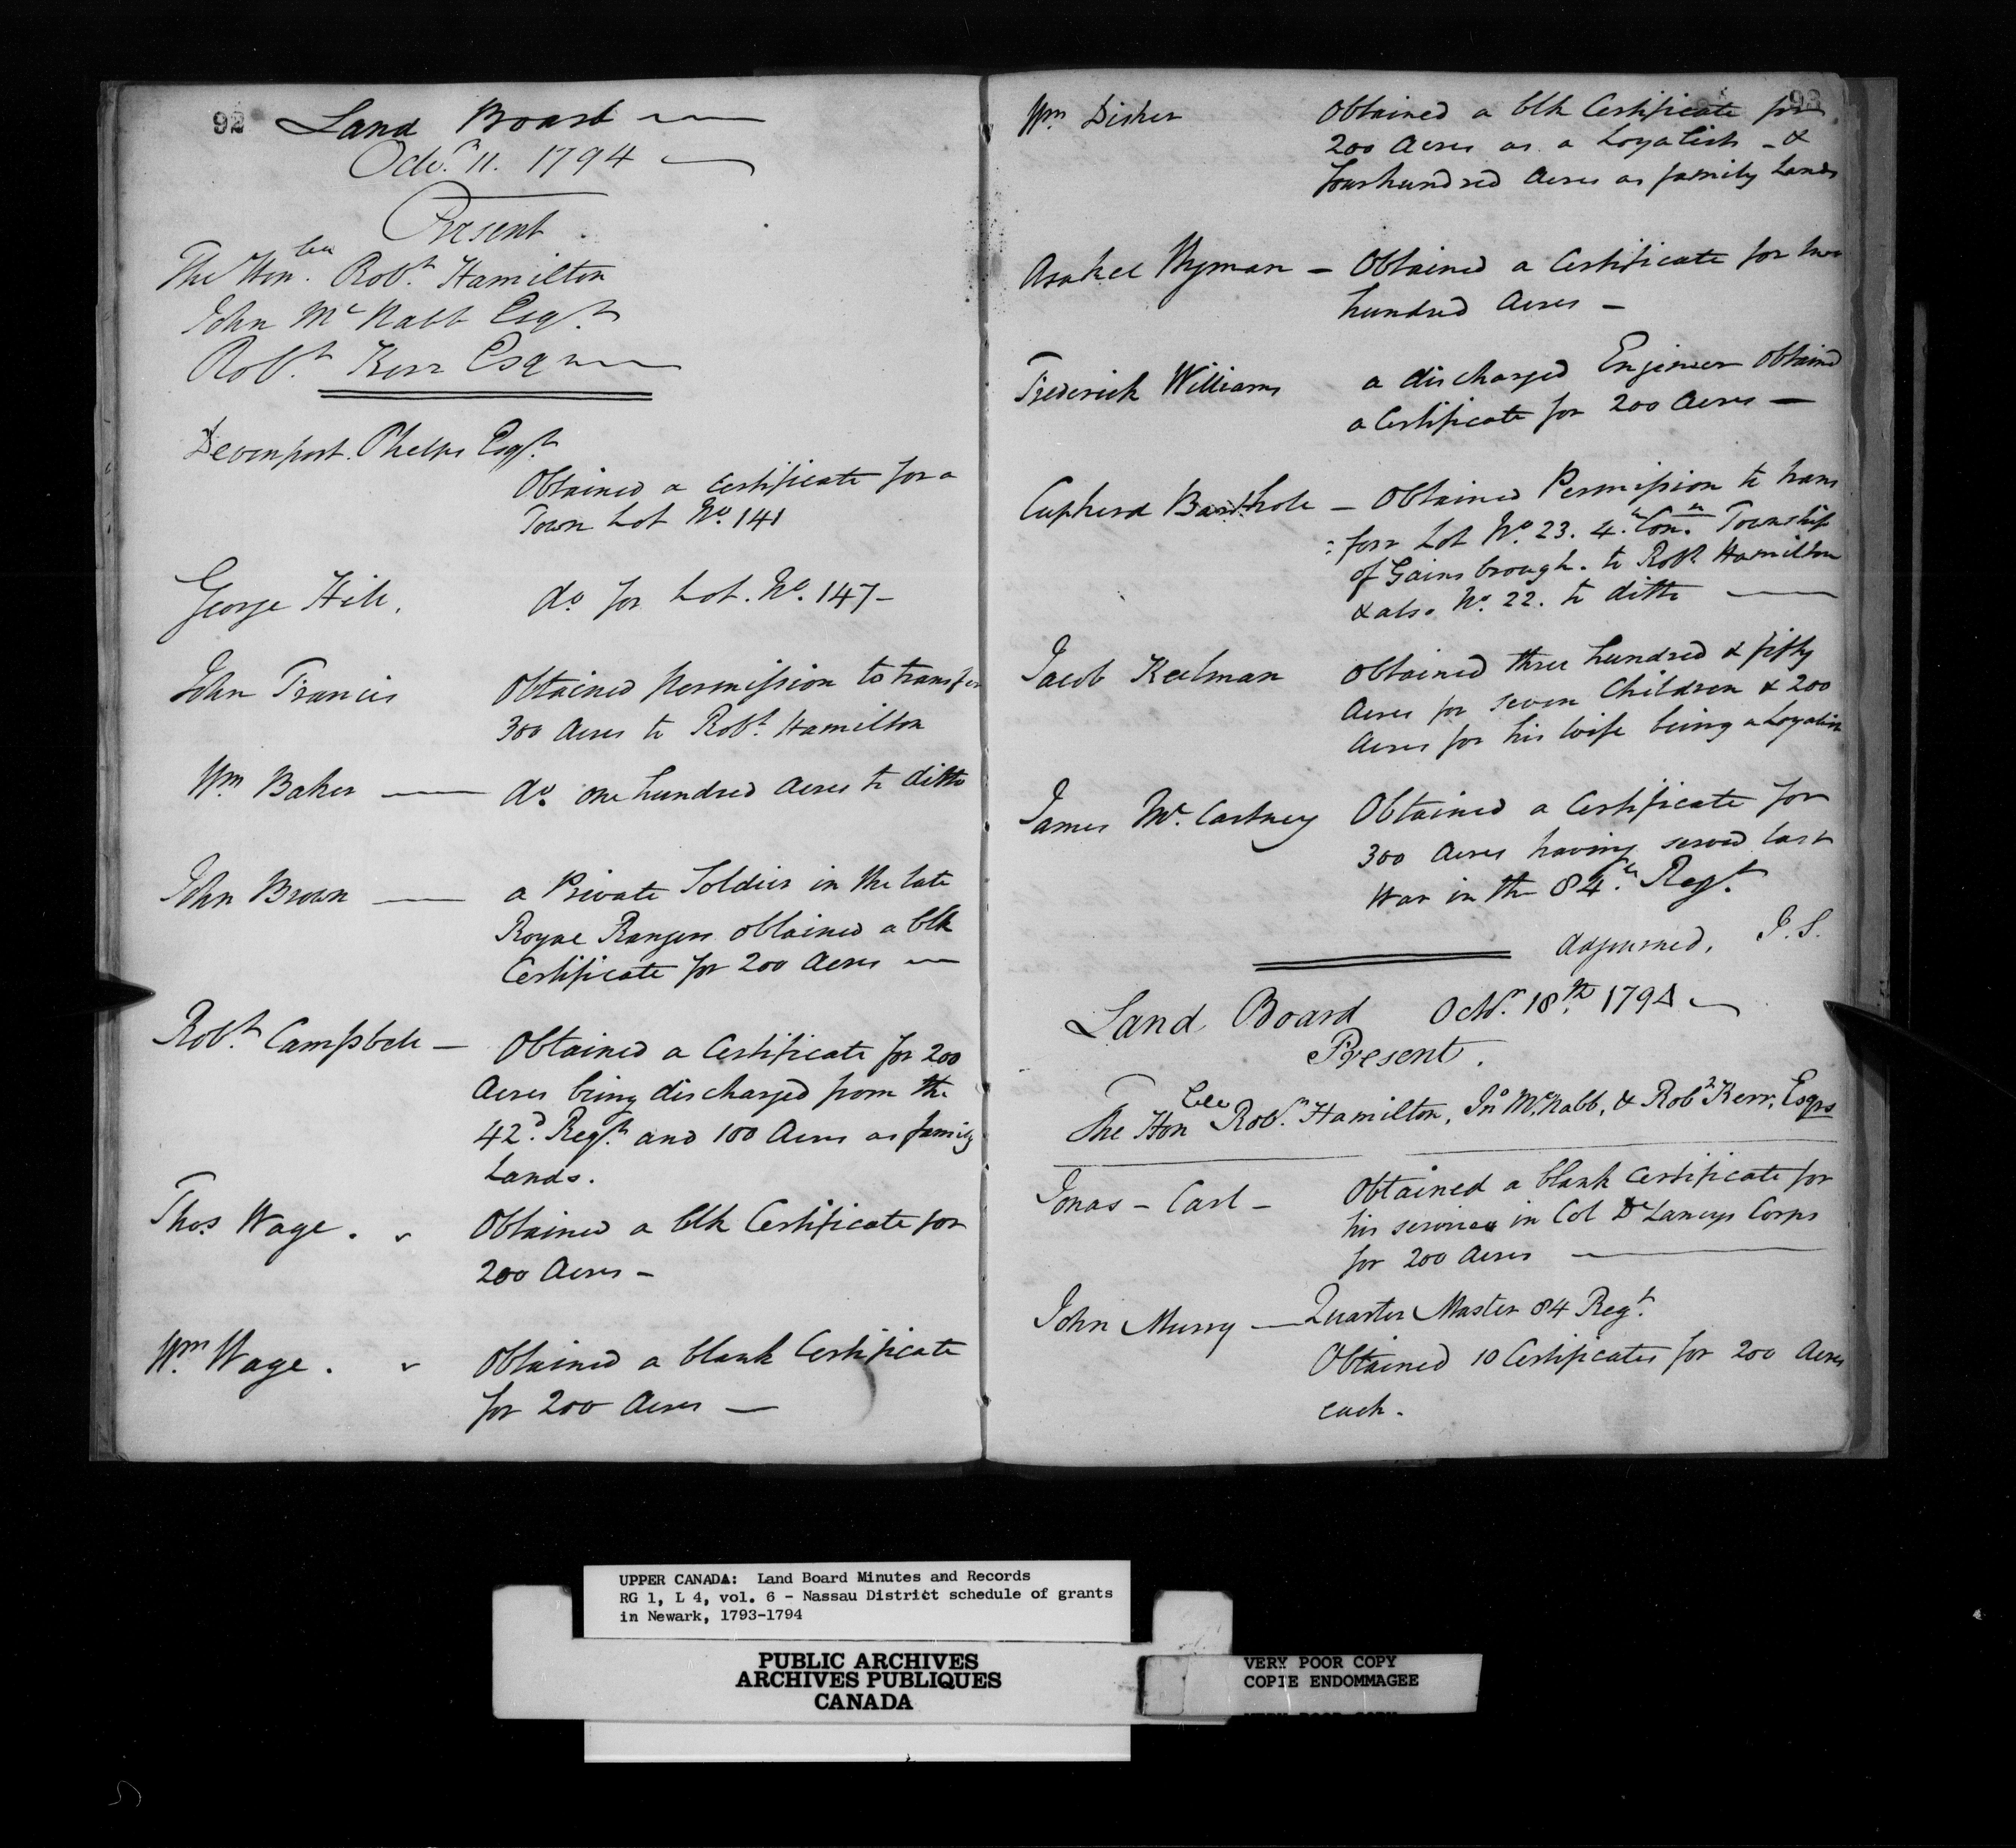 92
Land Board
Octr. 11. 1794
Present
The Honble. Robt. Hamilton
John McNabb Esqr.
Robt. Kerr Esqr
Devenport. Phelps Esqr.
Obtained a Certificate for a
Town Lot No. 141
George Hill, do. for Lot. No. 147-
John Francis Obtained permission to transfer
300 Acres to Robt. Hamilton
Wm. Baker — do. one hundred Acres to ditto
John Brown — a Private Soldier in the late
Royal Rangers obtained a blk
Certificate for 200 Acres —
Robt. Campbell — Obtained a Certificate for 200
Acres being discharged from the
42d. Regt. and 100 Acres as family
Lands.
Thos. Wage. Obtained a blk Certificate for
200 Acres -
Wm. Wage. Obtained a blank Certificate
for 200 Acres —
93
Wm. Disher Obtained a blk Certificate for
200 Acres as a Loyalist - &
four hundred Acres as family Lands
Asahel Wyman - Obtained a Certificate for two
hundred Acres -
Frederick Williams a discharged Enjineer Obtained
a Certificate for 200 Acres —
- Obtained Permission to trans
:fer Lot No. 23. 4.th Con.n Township
of Gainsbrough. to Robt. Hamilton
& also No. 22. to ditto —
Jacob Keelman Obtained three hundred & fifty
Acres for seven Children & 200
Acres for his wife being a Loyalist
James Mc.Cartney Obtained a Certificate for
300 Acres having served last
War in the 84.th Regt.
adjourned, J. S.
Land Board Octbr. 18th. 1794
Present.
The Honble Robt. Hamilton, Jno McNabb, & Robt Kerr, Esqrs
Jonas - Carl - Obtained a blank Certificate for
his services in Col DeLanceys Corps
for 200 Acres —
John Murry — Quarter Master 84 Regt.
Obtained 10 Certificates for 200 Acres
each.
UPPER CANADA: Land Board Minutes and Records
RG 1, L 4, vol. 6 - Nassau District schedule of grants
in Newark, 1793-1794
PUBLIC ARCHIVES
ARCHIVES PUBLIQUES
CANADA
VERY POOR COPY
COPIE ENDOMMAGEE